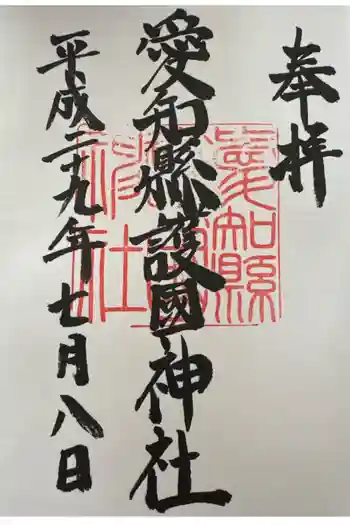 奉拝
愛知縣護國神社
平成二十九年七月八日
愛知縣
神社